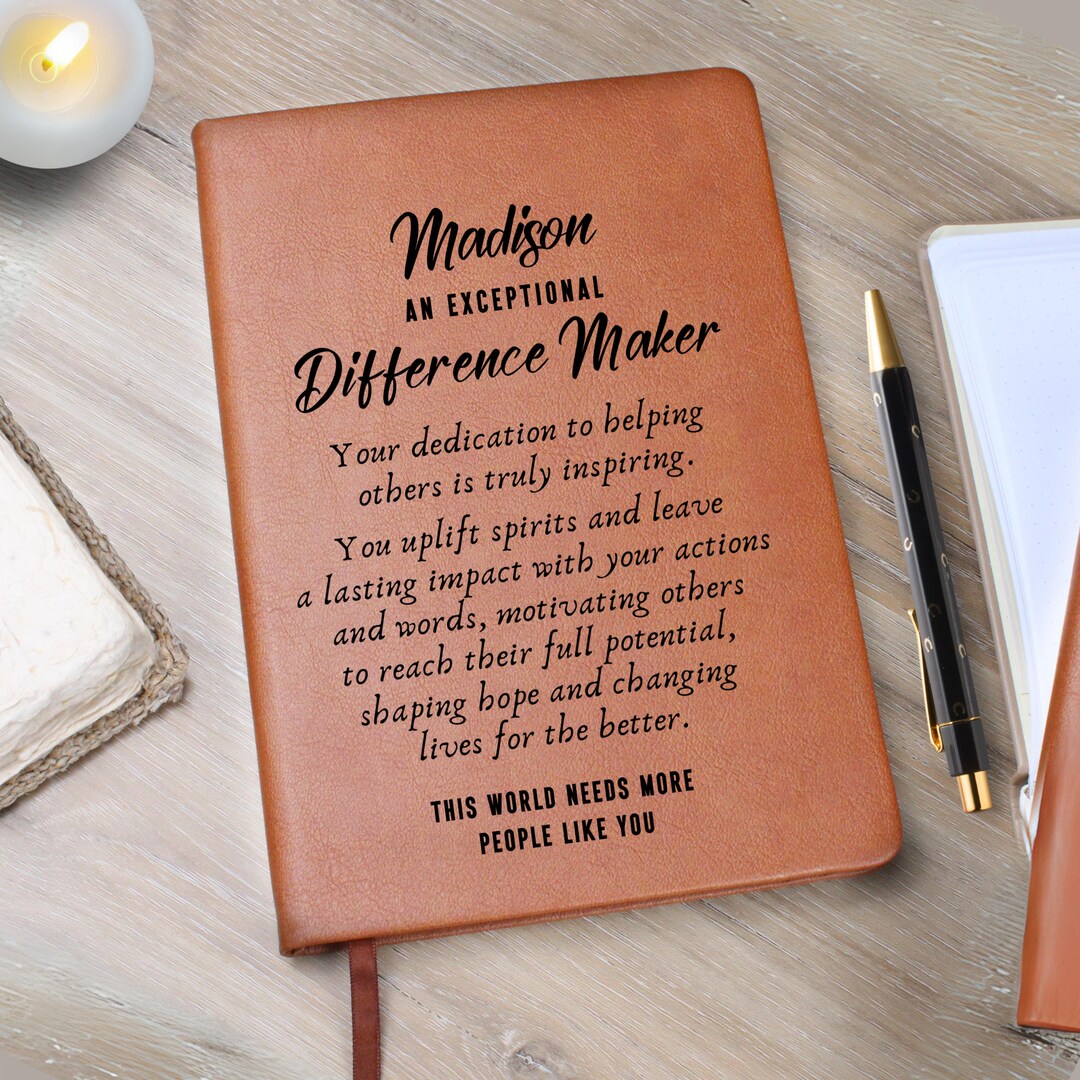 Madison
AN EXCEPTIONAL
Difference Maker
Your dedication to helping
others is truly inspiring.
You uplift spirits and leave
a lasting impact with your actions
and words, motivating others
to reach their full potential,
shaping hope and changing
lives for the better.
THIS WORLD NEEDS MORE
PEOPLE LIKE YOU